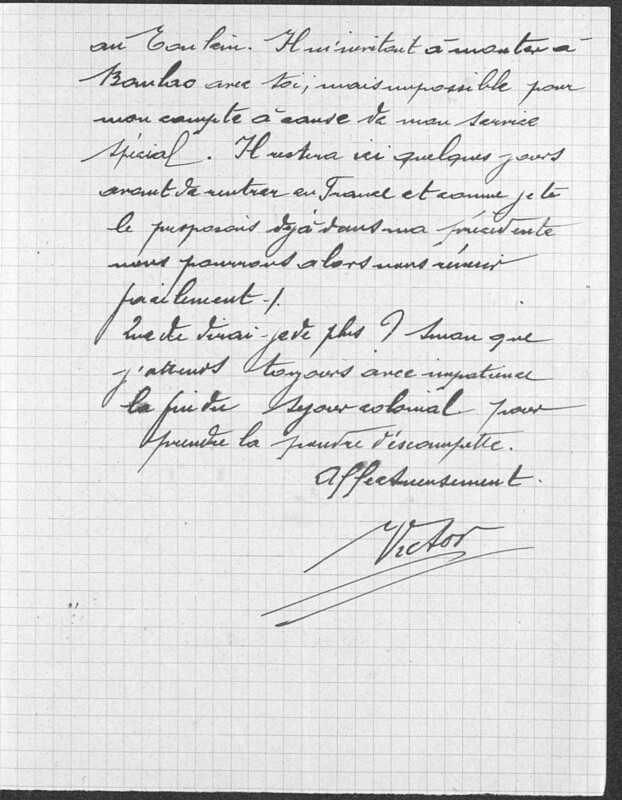 au Il m'invitait à monter à
Baulac avec toi; mais impossible pour
mon compte à cause de mon service
spécial. Il restera ici quelques jours
avant de rentrer en France et comme je te
le proposais déjà dans ma précédente
nous pourrons alors nous réunir
facilement -/.
Que te dirai-je de plus ? Sinon que
j'attends toujours avec impatience
la fin du séjour colonial pour
prendre la poudre d'éscampette.
Affectueusement.
Victor